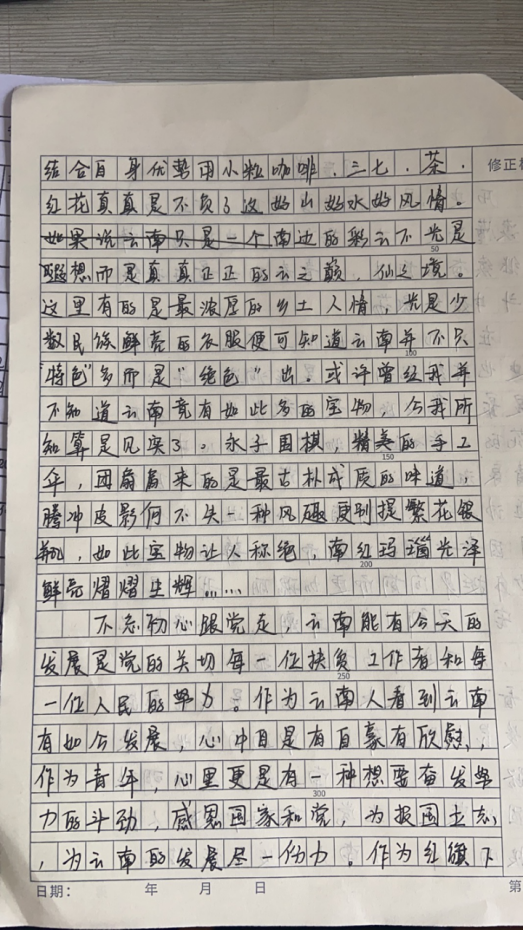 结合自身优势用小粒咖啡.三七.茶.
修正
红花真真是不负了这好山好水好风情。
如果说云南只是一个南边的彩云不光是
50
遐想而是真真正正的云之巅,仙之境。
这里有的是最浓厚的乡土人情,光是少
数民族鲜亮的衣服便可知道云南并不只
100
"特色"多而是"绝色"出。或许曾经我并
不知道云南竟有如此多的宝物,今我所
知算是见实了。永子围棋,精美的手工
150
年,团扇扇来的是最古朴的味道,
腾冲皮影何不失一种风趣更别提繁花银
瓶,如此宝物让人称绝,南红玛瑙光泽
200
鲜亮熠熠生辉……
不忘初心跟党走,云南能有今天的
发展是党的关切每一位扶贫工作者和每
250
一位人民的努力。作为云南人看到云南
有如今发展,心中自是有自豪有欣慰,
作为青年,心里更是有一种想要奋发努
300
力的斗劲,感恩国家和党,为报国土志
,为云南的发展尽一份力。作为红旗下
日期: 年 月 日
第